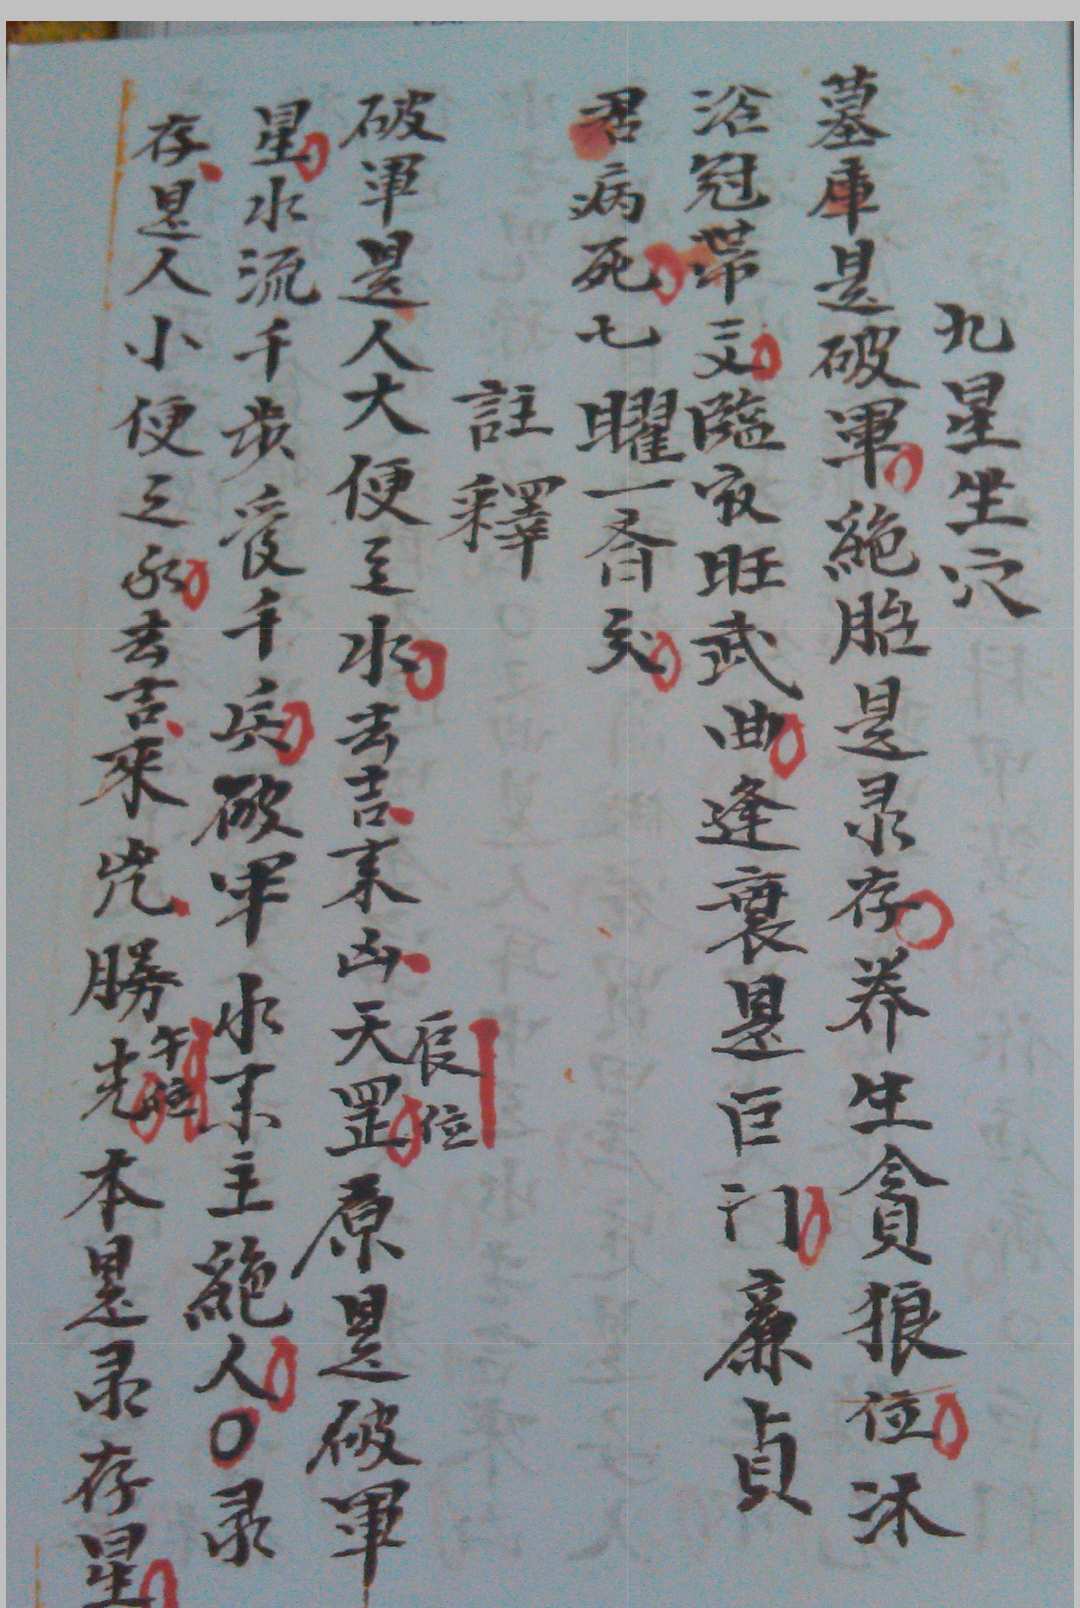 九星坐穴
墓庫是破軍絕胎是录存养生貪狼位沐
浴冠帶文臨官旺武曲逢衰是巨门廉貞
君病死七曜一齊
註釋
破軍是人大便之水去吉来凶天罡辰位原是破軍
星水流千步受千兵破军水来主絕人〇录
存是人小便之水去吉來兇勝光午位本是录存星